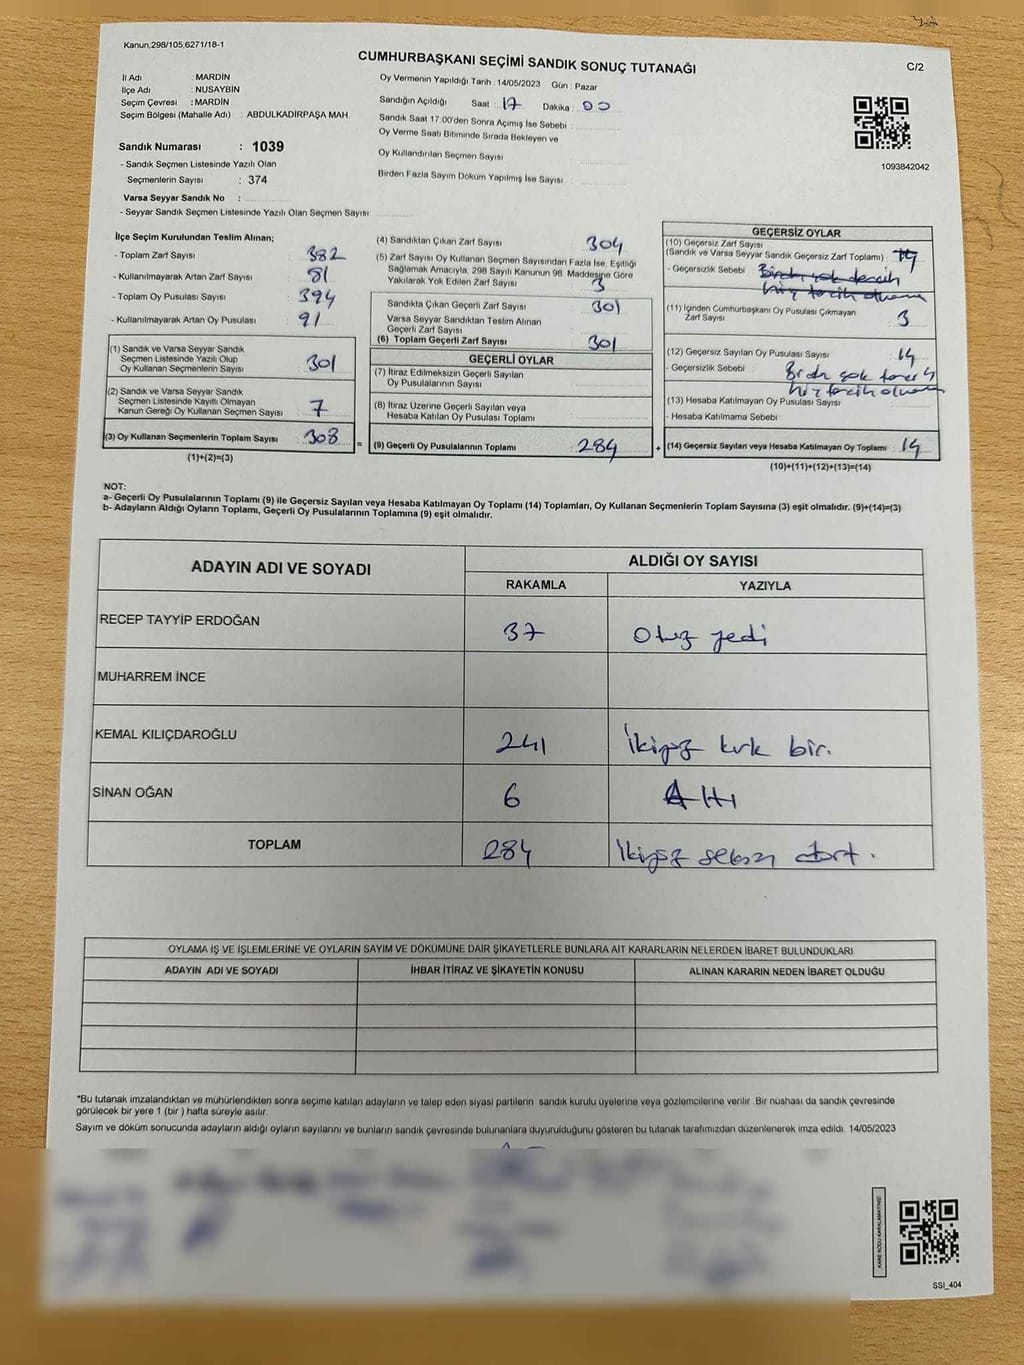 Kanun;298/105,6271/18-1
CUMHURBAŞKANI SEÇİMİ SANDIK SONUÇ TUTANAĞI
C/2
İl Adı : MARDİN
İlçe Adı : NUSAYBİN
Seçim Çevresi : MARDİN
Seçim Bölgesi (Mahalle Adı) : ABDULKADİRPAŞA MAH.
Oy Vermenin Yapıldığı Tarih : 14/05/2023 Gün : Pazar
Sandığın Açıldığı Saat : 17 Dakika : 00
Sandık Saat 17:00'den Sonra Açımış İse Sebebi :
Oy Verme Saati Bitiminde Sırada Bekleyen ve
Oy Kullandırılan Seçmen Sayısı :
Birden Fazla Sayım Döküm Yapılmış İse Sayısı :
1093842042
Sandık Numarası : 1039
- Sandık Seçmen Listesinde Yazılı Olan
Seçmenlerin Sayısı : 374
Varsa Seyyar Sandık No :
- Seyyar Sandık Seçmen Listesinde Yazılı Olan Seçmen Sayısı:
İlçe Seçim Kurulundan Teslim Alınan;
- Toplam Zarf Sayısı : 382
- Kullanılmayarak Artan Zarf Sayısı : 81
- Toplam Oy Pusulası Sayısı : 394
- Kullanılmayarak Artan Oy Pusulası : 91
(1) Sandık ve Varsa Seyyar Sandık
Seçmen Listesinde Yazılı Olup
Oy Kullanan Seçmenlerin Sayısı : 301
(2) Sandık ve Varsa Seyyar Sandık
Seçmen Listesinde Kayıtlı Olmayan
Kanun Gereği Oy Kullanan Seçmen Sayısı : 7
(3) Oy Kullanan Seçmenlerin Toplam Sayısı : 308
(1)+(2)=(3)
(4) Sandıktan Çıkan Zarf Sayısı : 304
(5) Zarf Sayısı Oy Kullanan Seçmen Sayısından Fazla İse, Eşitliği
Sağlamak Amacıyla, 298 Sayılı Kanunun 98. Maddesine Göre
Yakılarak Yok Edilen Zarf Sayısı : 3
Sandıkta Çıkan Geçerli Zarf Sayısı : 301
Varsa Seyyar Sandıktan Teslim Alınan
Geçerli Zarf Sayısı :
(6) Toplam Geçerli Zarf Sayısı : 301
GEÇERLİ OYLAR
(7) İtiraz Edilmeksizin Geçerli Sayılan
Oy Pusulalarının Sayısı :
(8) İtiraz Üzerine Geçerli Sayılan veya
Hesaba Katılan Oy Pusulaları Toplamı :
= (9) Geçerli Oy Pusulalarının Toplamı : 284
GEÇERSİZ OYLAR
(10) Geçersiz Zarf Sayısı
(Sandık ve Varsa Seyyar Sandık Geçersiz Zarf Toplamı) : 14
- Geçersizlik Sebebi : Birden çok tercih
hiç tercih olmama
(11) İçinden Cumhurbaşkanı Oy Pusulası Çıkmayan
Zarf Sayısı : 3
(12) Geçersiz Sayılan Oy Pusulası Sayısı : 14
- Geçersizlik Sebebi : Birden çok tercih
hiç tercih olmama
(13) Hesaba Katılmayan Oy Pusulası Sayısı :
- Hesaba Katılmama Sebebi :
+ (14) Geçersiz Sayılan veya Hesaba Katılmayan Oy Toplamı : 14
(10)+(11)+(12)+(13)=(14)
NOT:
a- Geçerli Oy Pusulalarının Toplamı (9) ile Geçersiz Sayılan veya Hesaba Katılmayan Oy Toplamı (14) Toplamları, Oy Kullanan Seçmenlerin Toplam Sayısına (3) eşit olmalıdır. (9)+(14)=(3)
b- Adayların Aldığı Oyların Toplamı, Geçerli Oy Pusulalarının Toplamına (9) eşit olmalıdır.
ADAYIN ADI VE SOYADI
ALDIĞI OY SAYISI
RAKAMLA YAZIYLA
RECEP TAYYİP ERDOĞAN 37 Otuz yedi
MUHARREM İNCE
KEMAL KILIÇDAROĞLU 241 İkiyüz kırk bir.
SİNAN OĞAN 6 Altı
TOPLAM 284 İkiyüz seksen dört.
OYLAMA İŞ VE İŞLEMLERİNE VE OYLARIN SAYIM VE DÖKÜMÜNE DAİR ŞİKAYETLERLE BUNLARA AİT KARARLARIN NELERDEN İBARET BULUNDUKLARI
ADAYIN ADI VE SOYADI İHBAR İTİRAZ VE ŞİKAYETİN KONUSU ALINAN KARARIN NEDEN İBARET OLDUĞU
*Bu tutanak imzalandıktan ve mühürlendikten sonra seçime katılan adayların ve talep eden siyasi partilerin sandık kurulu üyelerine veya gözlemcilerine verilir. Bir nüshası da sandık çevresinde
görülecek bir yere 1 (bir ) hafta süreyle asılır.
Sayım ve döküm sonucunda adayların aldığı oyların sayılarını ve bunların sandık çevresinde bulunanlara duyurulduğunu gösteren bu tutanak tarafımızdan düzenlenerek imza edildi. 14/05/2023
KARE KODU KARALAMAYINIZ!
SSI_404